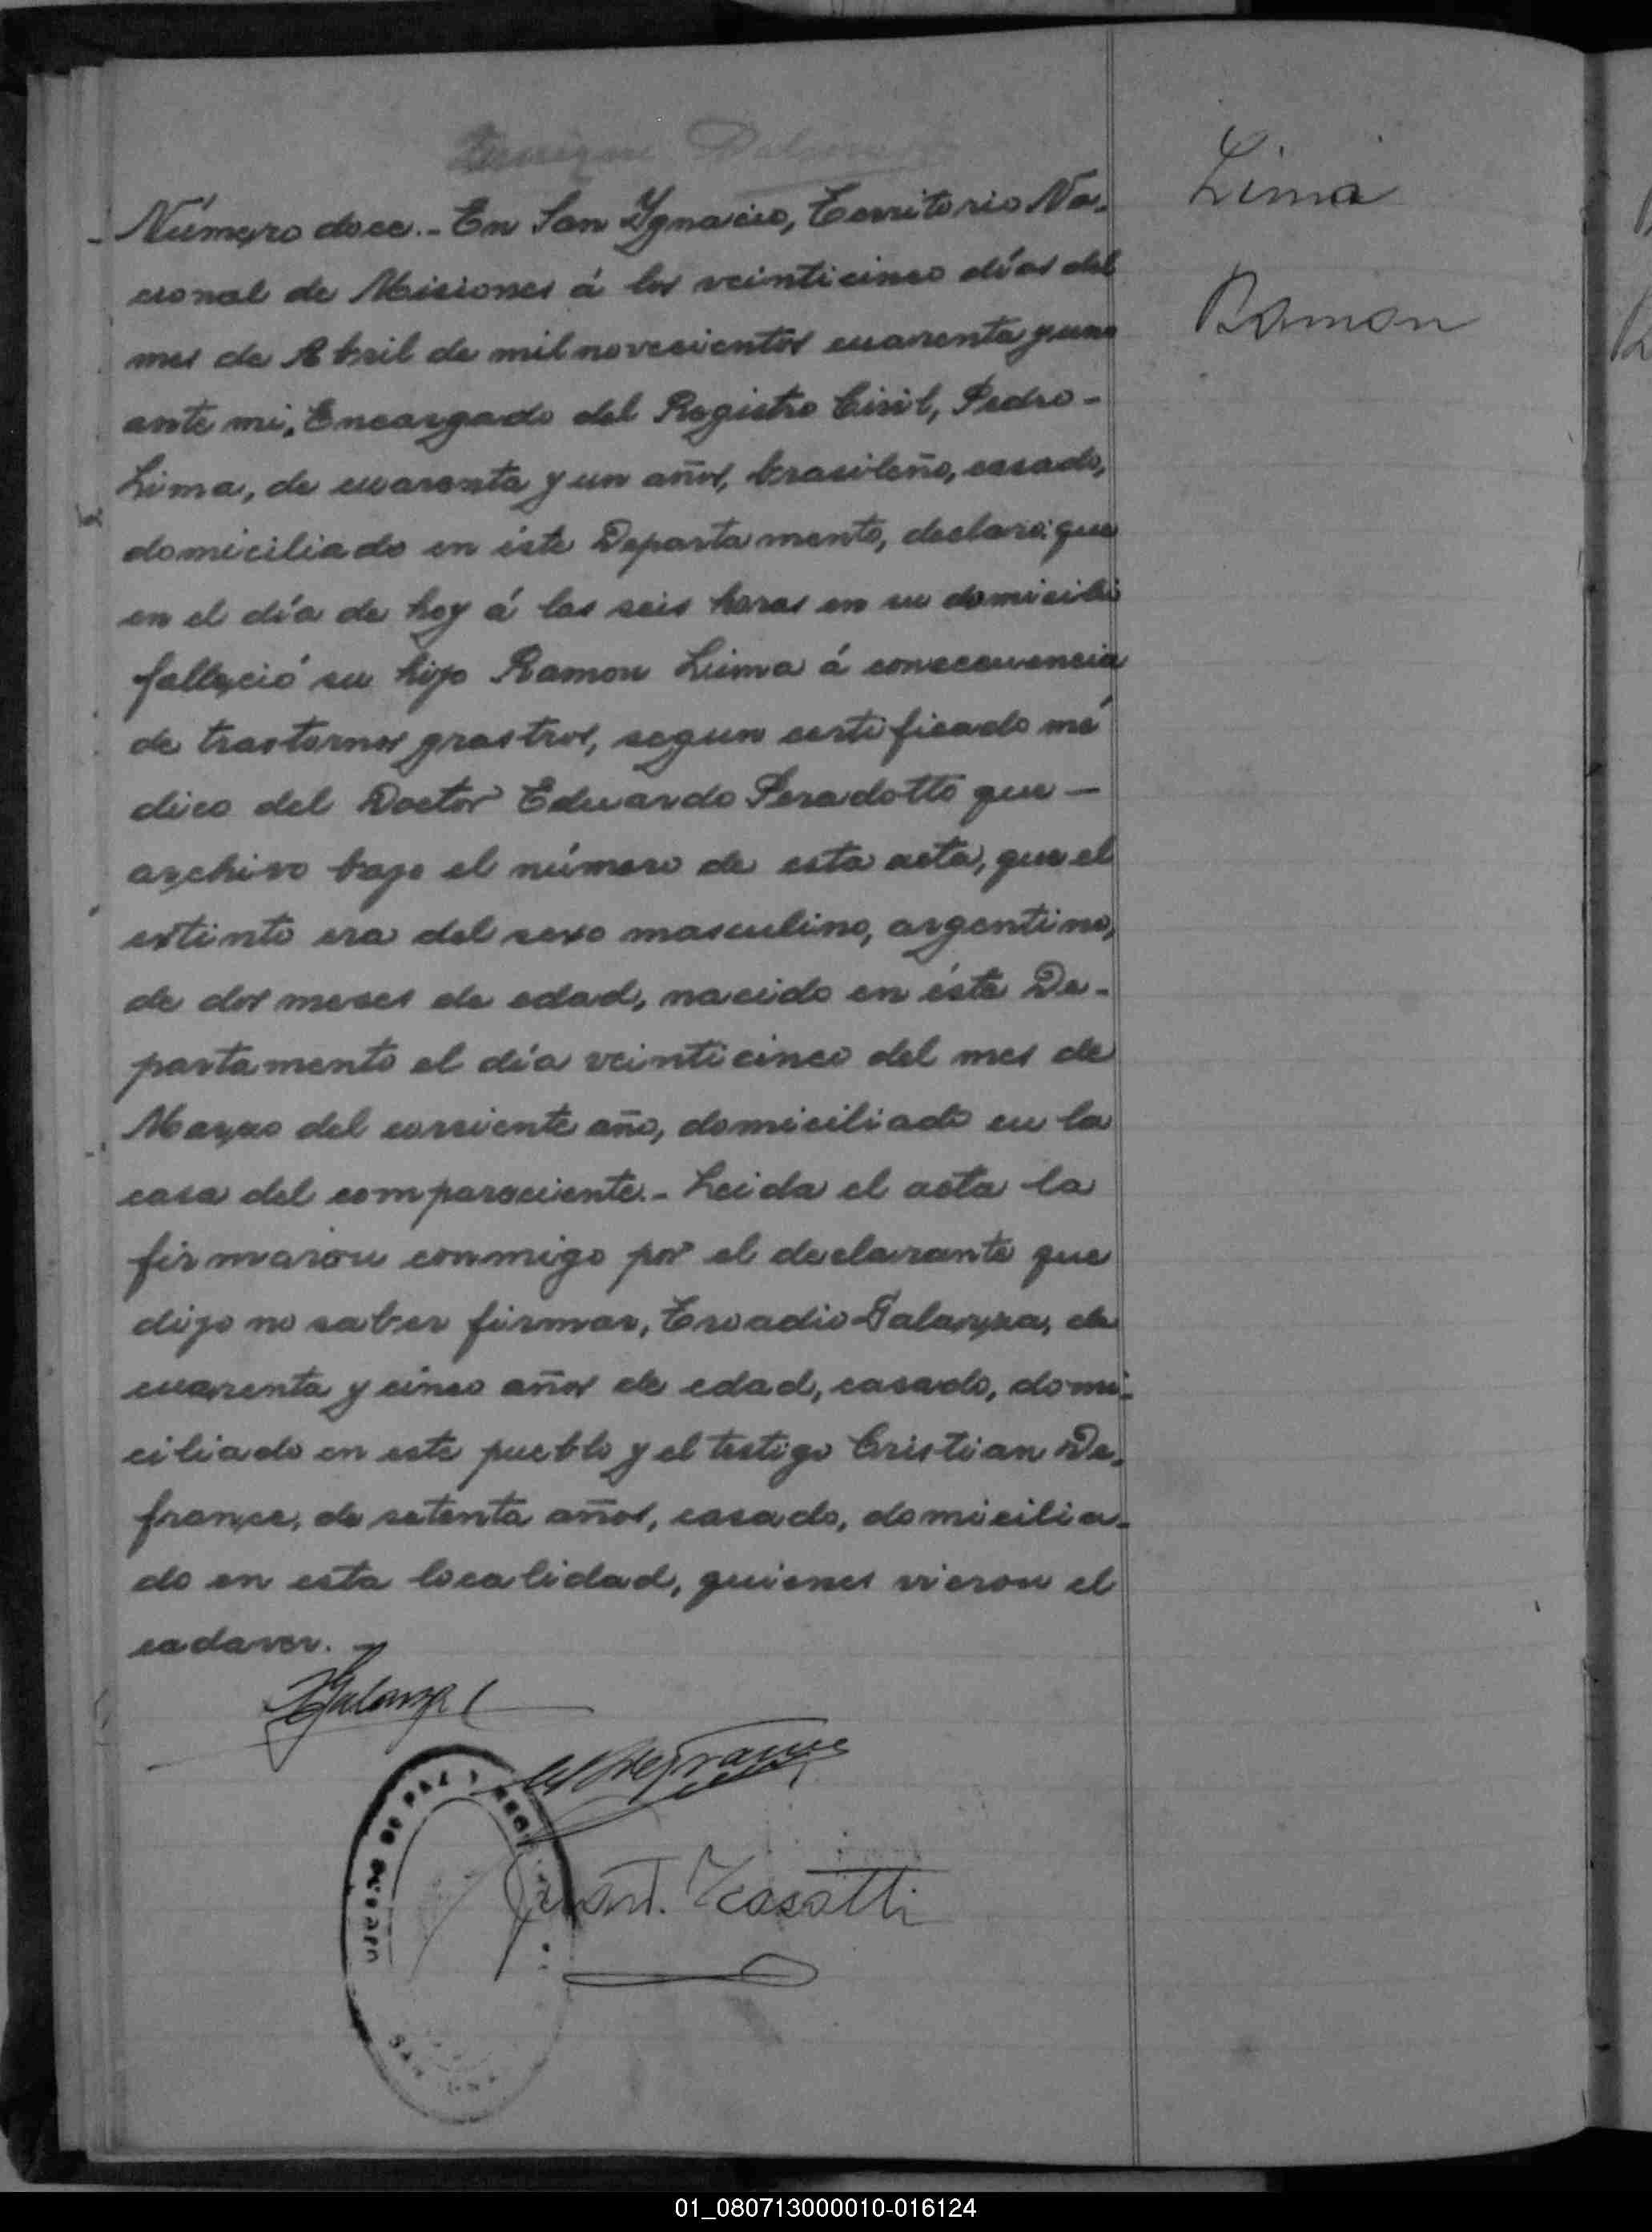 Número doce.- En San Ygnacio, Territorio Na-
cional de Misiones á los veinticinco días del
mes de Abril de mil novecientos cuarenta y uno
ante mi, Encargado del Registro Civil, Pedro -
Lima, de cuarenta y un años, brasileño, casado,
domiciliado en éste Departamento, declaró: que
en el día de hoy á las seis horas en su domicilio
falleció su hijo Ramon Lima á consecuencia
de trastornos grastros, segun certificado mé
dico del Doctor Eduardo Peradotto que —
archivo bajo el número de esta acta, que el
extinto era del sexo masculino, argentino,
de dos meses de edad, nacido en éste De-
partamento el día veinticinco del mes de
Marzo del corriente año, domiciliado en la
casa del compareciente.- Leida el acta la
firmaron conmigo por el declarante que
dijo no saber firmar, Eroadio Galarza, de
cuarenta y cinco años de edad, casado, domi-
ciliado en este pueblo y el testigo Cristian De-
france, de setenta años, casado, domicilia-
do en esta localidad, quienes vieron el
cadaver.
Lima
Ramon
Galarza
Defrance
Juan T. Zasatti
DE PAZ Y
SAN
01_080713000010-016124